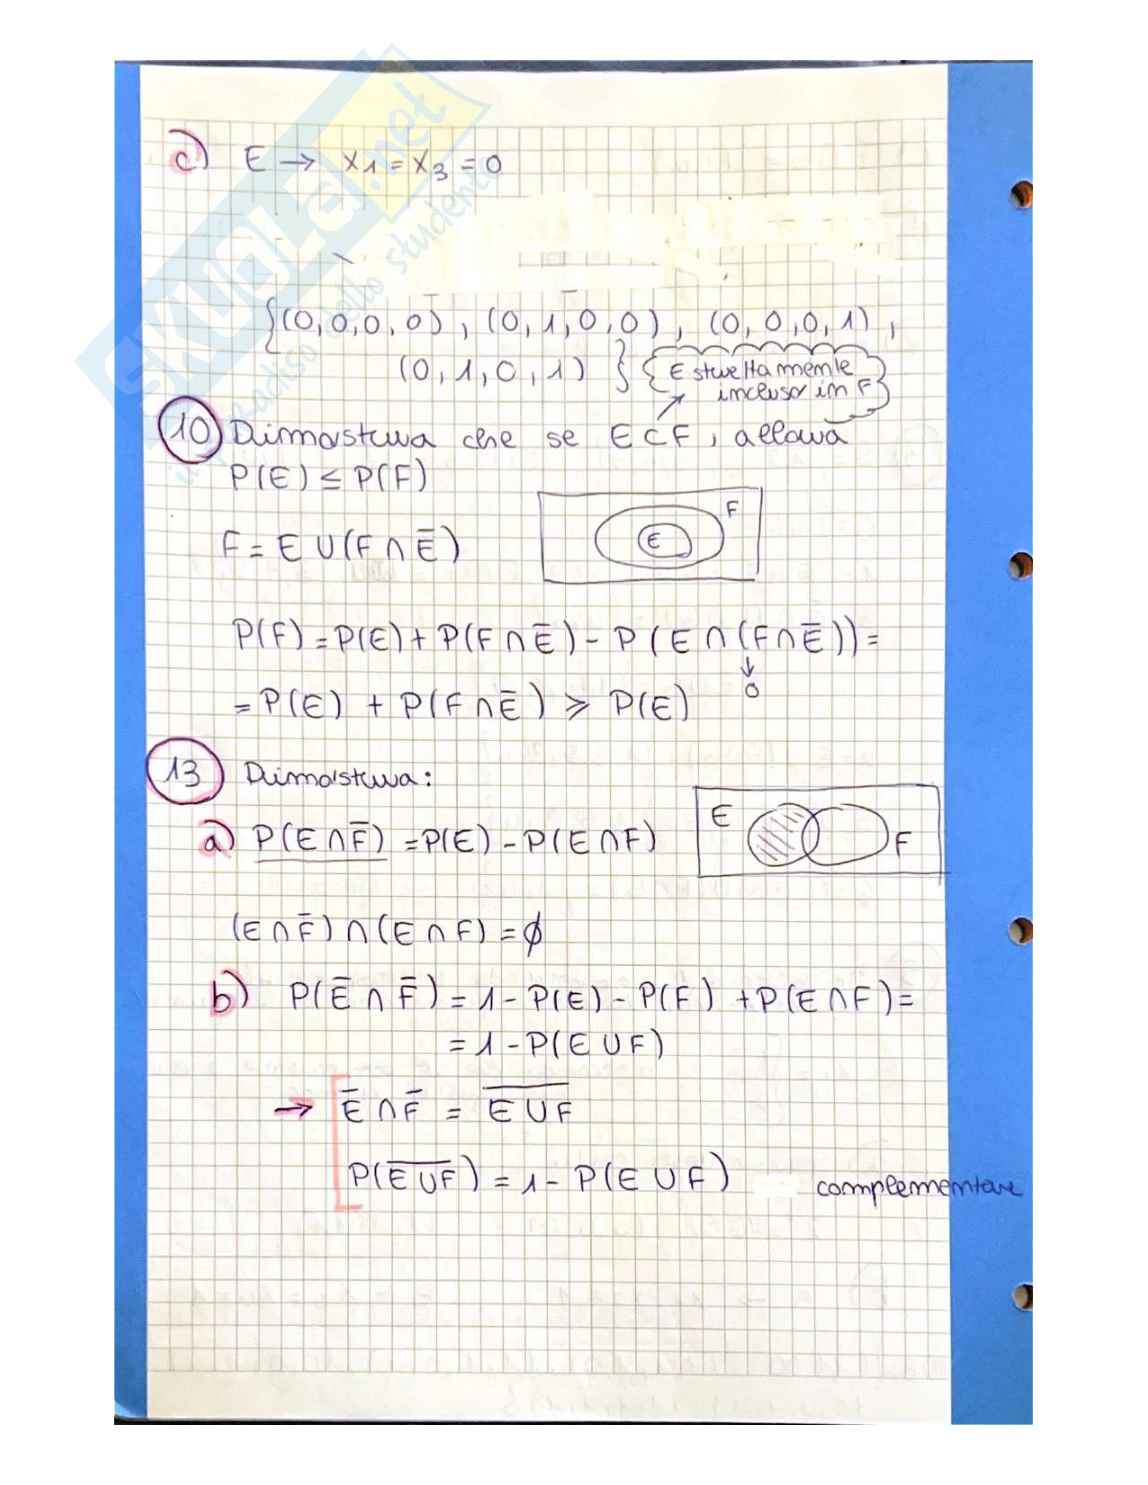 c) E → x1 = x3 = 0
{(0,0,0,0), (0,1,0,0), (0,0,0,1),
(0,1,0,1)}
{E strettamente
incluso in F}
10 Dimostra che se E⊂F, allora
P(E) ≤ P(F)
F = E ∪ (F ∩ Ē)
F
E
P(F) = P(E) + P(F ∩ Ē) - P(E ∩ (F ∩ Ē)) =
↓
0
= P(E) + P(F ∩ Ē) ⩾ P(E)
13 Dimostra:
a) P(E ∩ F̄) = P(E) - P(E ∩ F)
E
F
(E ∩ F̄) ∩ (E ∩ F) = ∅
b) P(Ē ∩ F̄) = 1 - P(E) - P(F) + P(E ∩ F) =
= 1 - P(E ∪ F)
→ Ē ∩ F̄ = E̅ ̅∪̅ ̅F̅
P(E̅ ̅∪̅ ̅F̅) = 1 - P(E ∪ F) complementare
SKUOLA.net